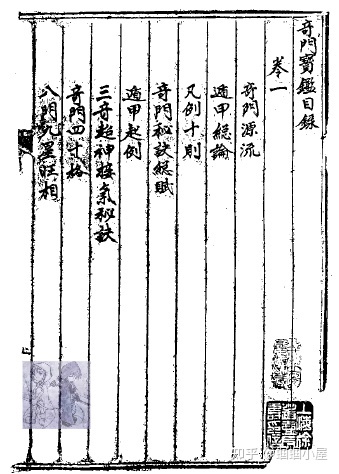 奇門寶鑑目錄
卷一
奇門源流
遁甲總論
凡例十則
奇門秘訣總賦
遁甲起例
三奇超神接氣秘訣
奇門四十格
八門九星旺相
知乎
小屋